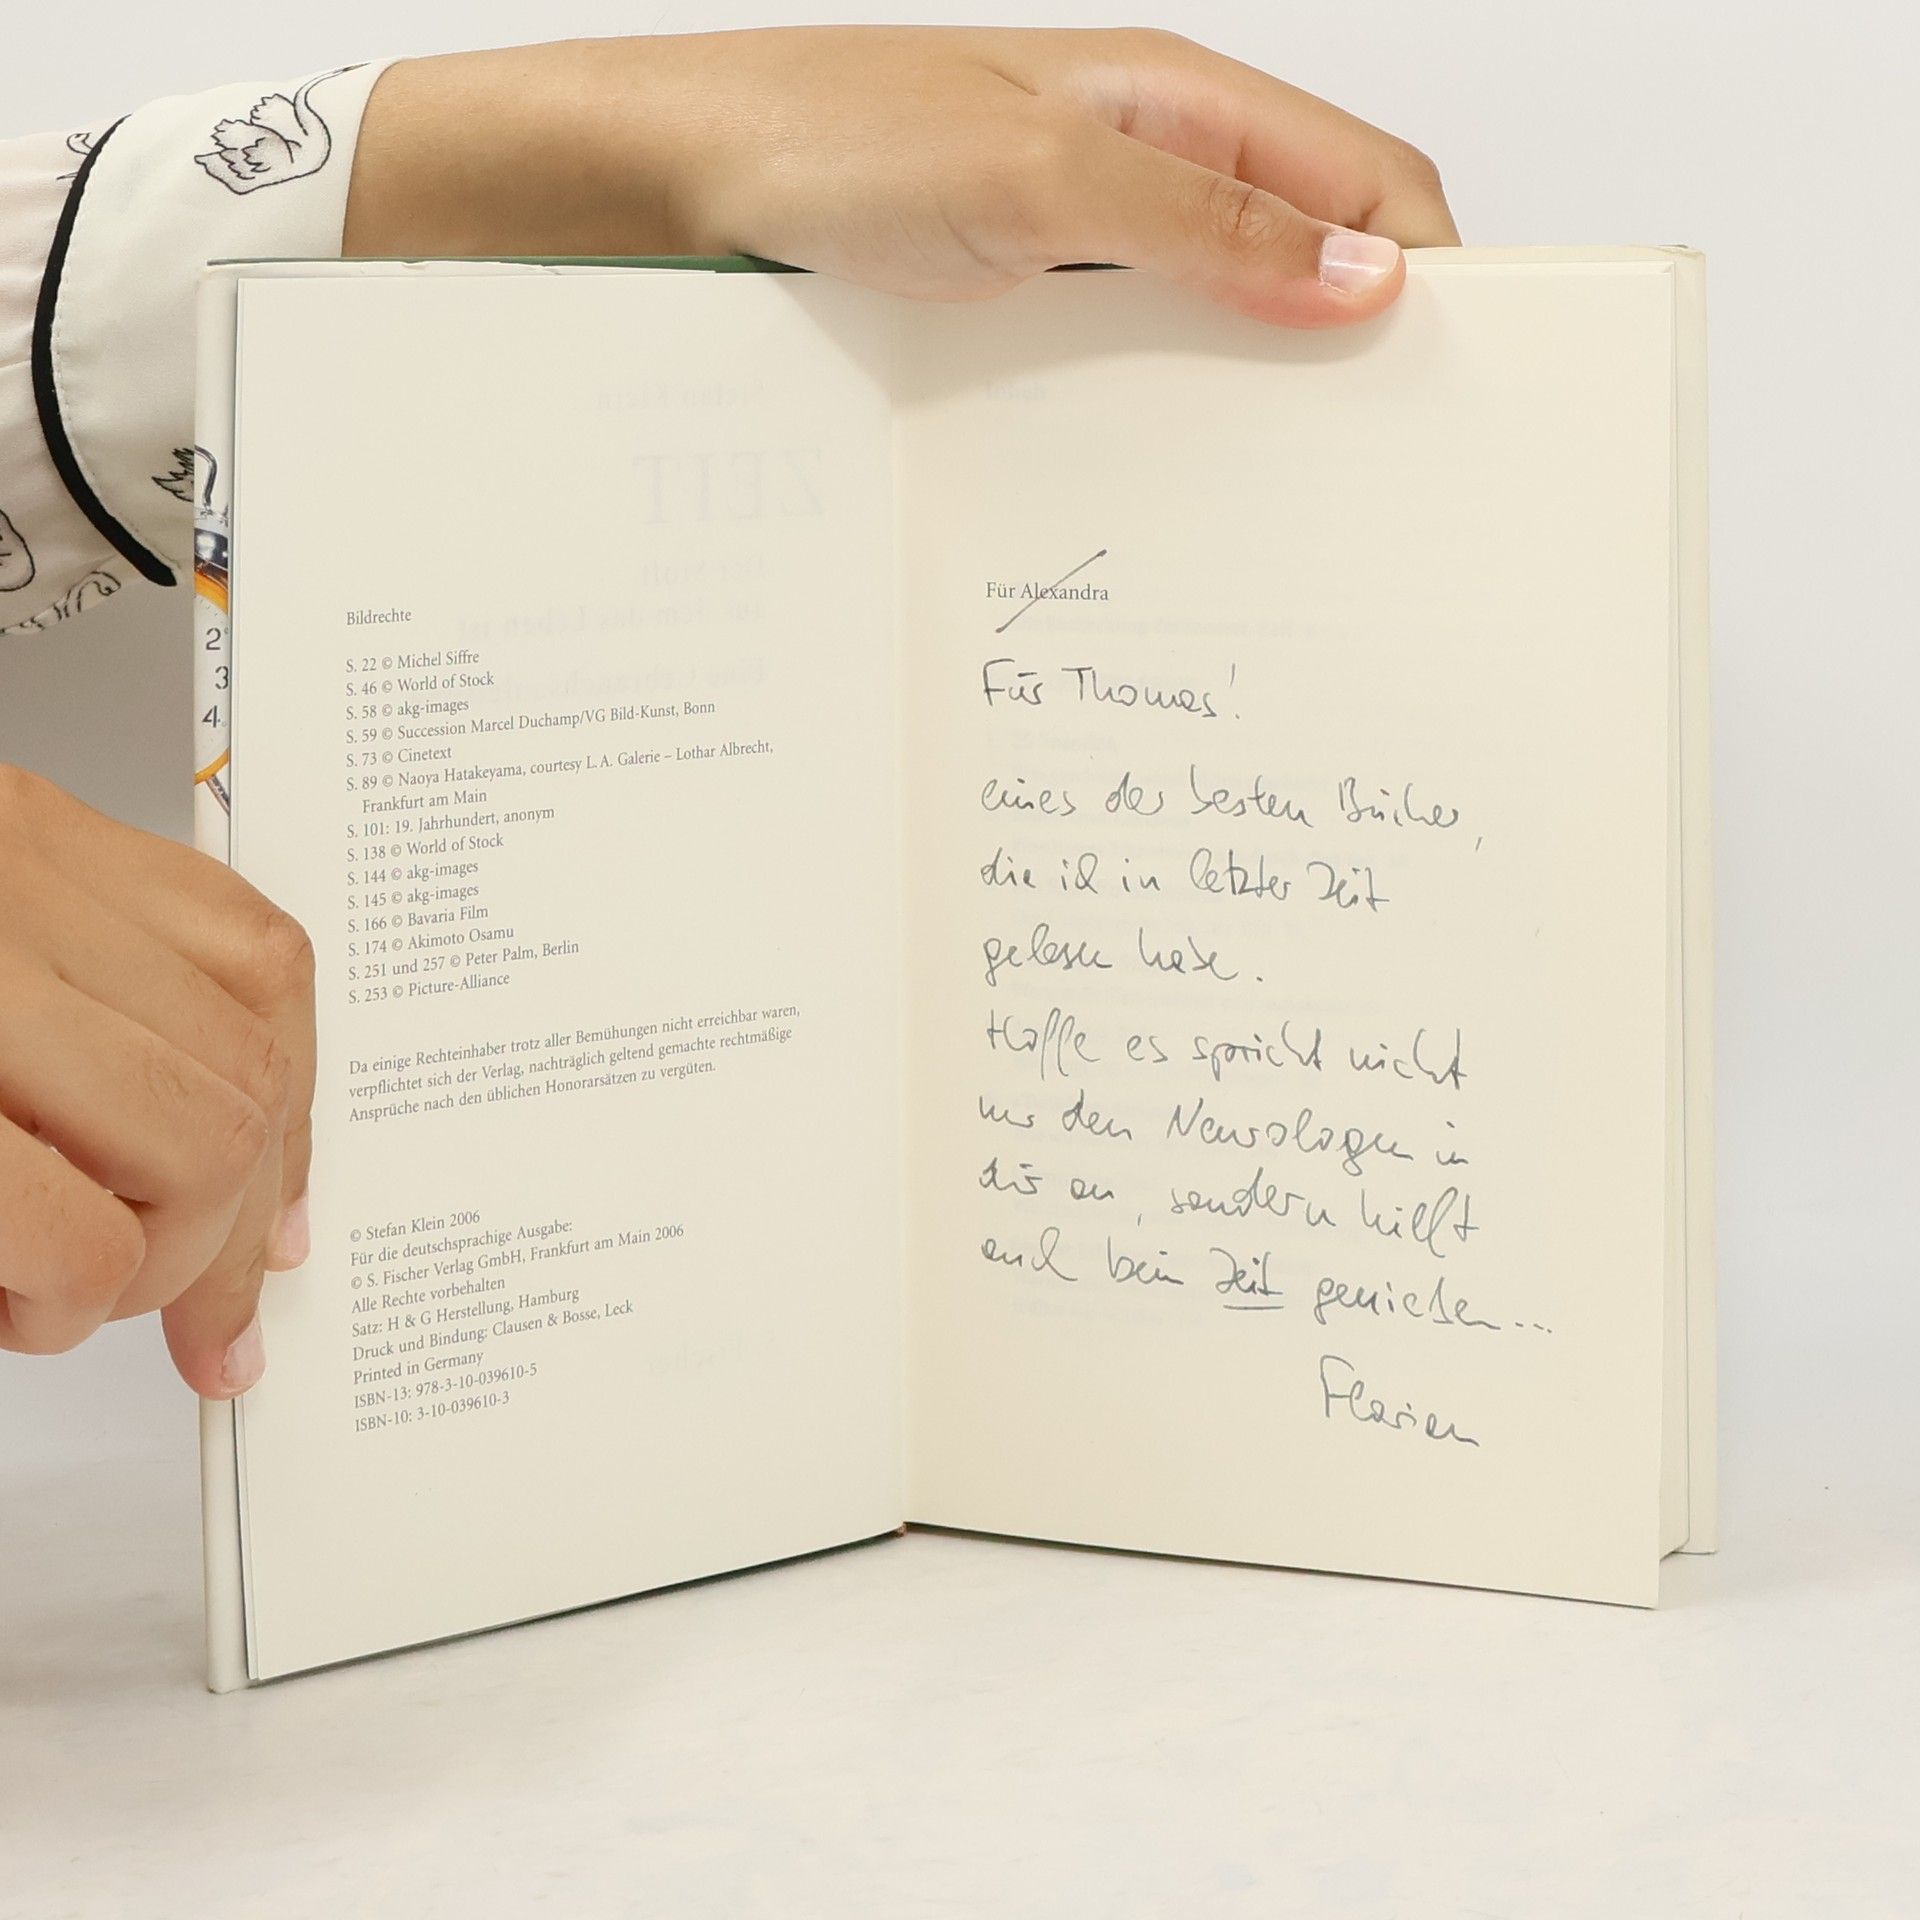 Bildrechte
S. 22 © Michel Siffre
S. 46 © World of Stock
S. 58 © akg-images
S. 59 © Succession Marcel Duchamp/VG Bild-Kunst, Bonn
S. 73 © Cinetext
S. 89 © Naoya Hatakeyama, courtesy L. A. Galerie – Lothar Albrecht,
Frankfurt am Main
S. 101: 19. Jahrhundert, anonym
S. 138 © World of Stock
S. 144 © akg-images
S. 145 © akg-images
S. 166 © Bavaria Film
S. 174 © Akimoto Osamu
S. 251 und 257 © Peter Palm, Berlin
S. 253 © Picture-Alliance
Da einige Rechteinhaber trotz aller Bemühungen nicht erreichbar waren,
verpflichtet sich der Verlag, nachträglich geltend gemachte rechtmäßige
Ansprüche nach den üblichen Honorarsätzen zu vergüten.
© Stefan Klein 2006
Für die deutschsprachige Ausgabe:
© S. Fischer Verlag GmbH, Frankfurt am Main 2006
Alle Rechte vorbehalten
Satz: H & G Herstellung, Hamburg
Druck und Bindung: Clausen & Bosse, Leck
Printed in Germany
ISBN-13: 978-3-10-039610-5
ISBN-10: 3-10-039610-3
2
3
4
Für Alexandra
Für Thomas!
eines der besten Bücher,
die ich in letzter Zeit
gelesen habe.
Hoffe es spricht nicht
nur den Neurologen in
dir an, sondern hilft
auch beim Zeit genießen...
Florian